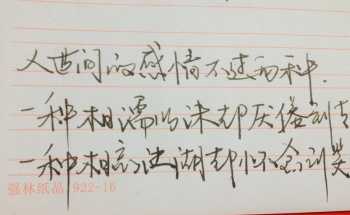 人世间的感情不过两种.
一种相濡以沫却厌倦到
一种相忘江湖却怀念到哭
强林纸品 922-16